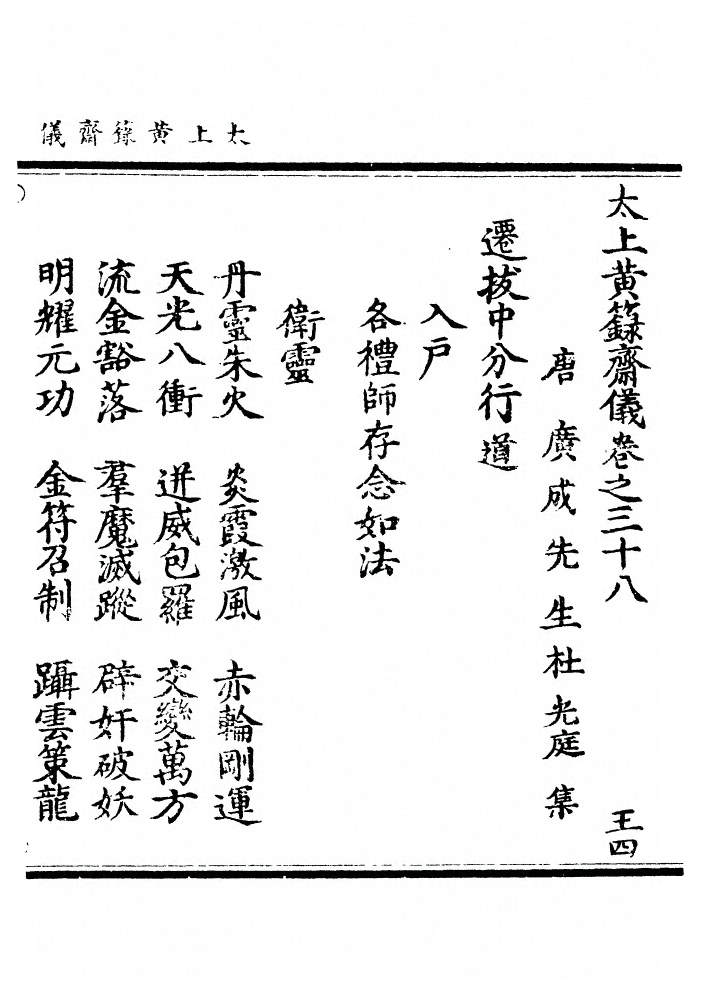 太上黃籙齋儀
太上黃籙齋儀卷之三十八 王四
唐廣成先生杜光庭集
遷拔中分行道
入戶
各禮師存念如法
衛靈
丹靈朱火 炎霞激風 赤輪剛運
天光八衝 迸威包羅 交變萬方
流金豁落 羣魔滅蹤 辟奸破妖
明耀元功 金符召制 躡雲策龍